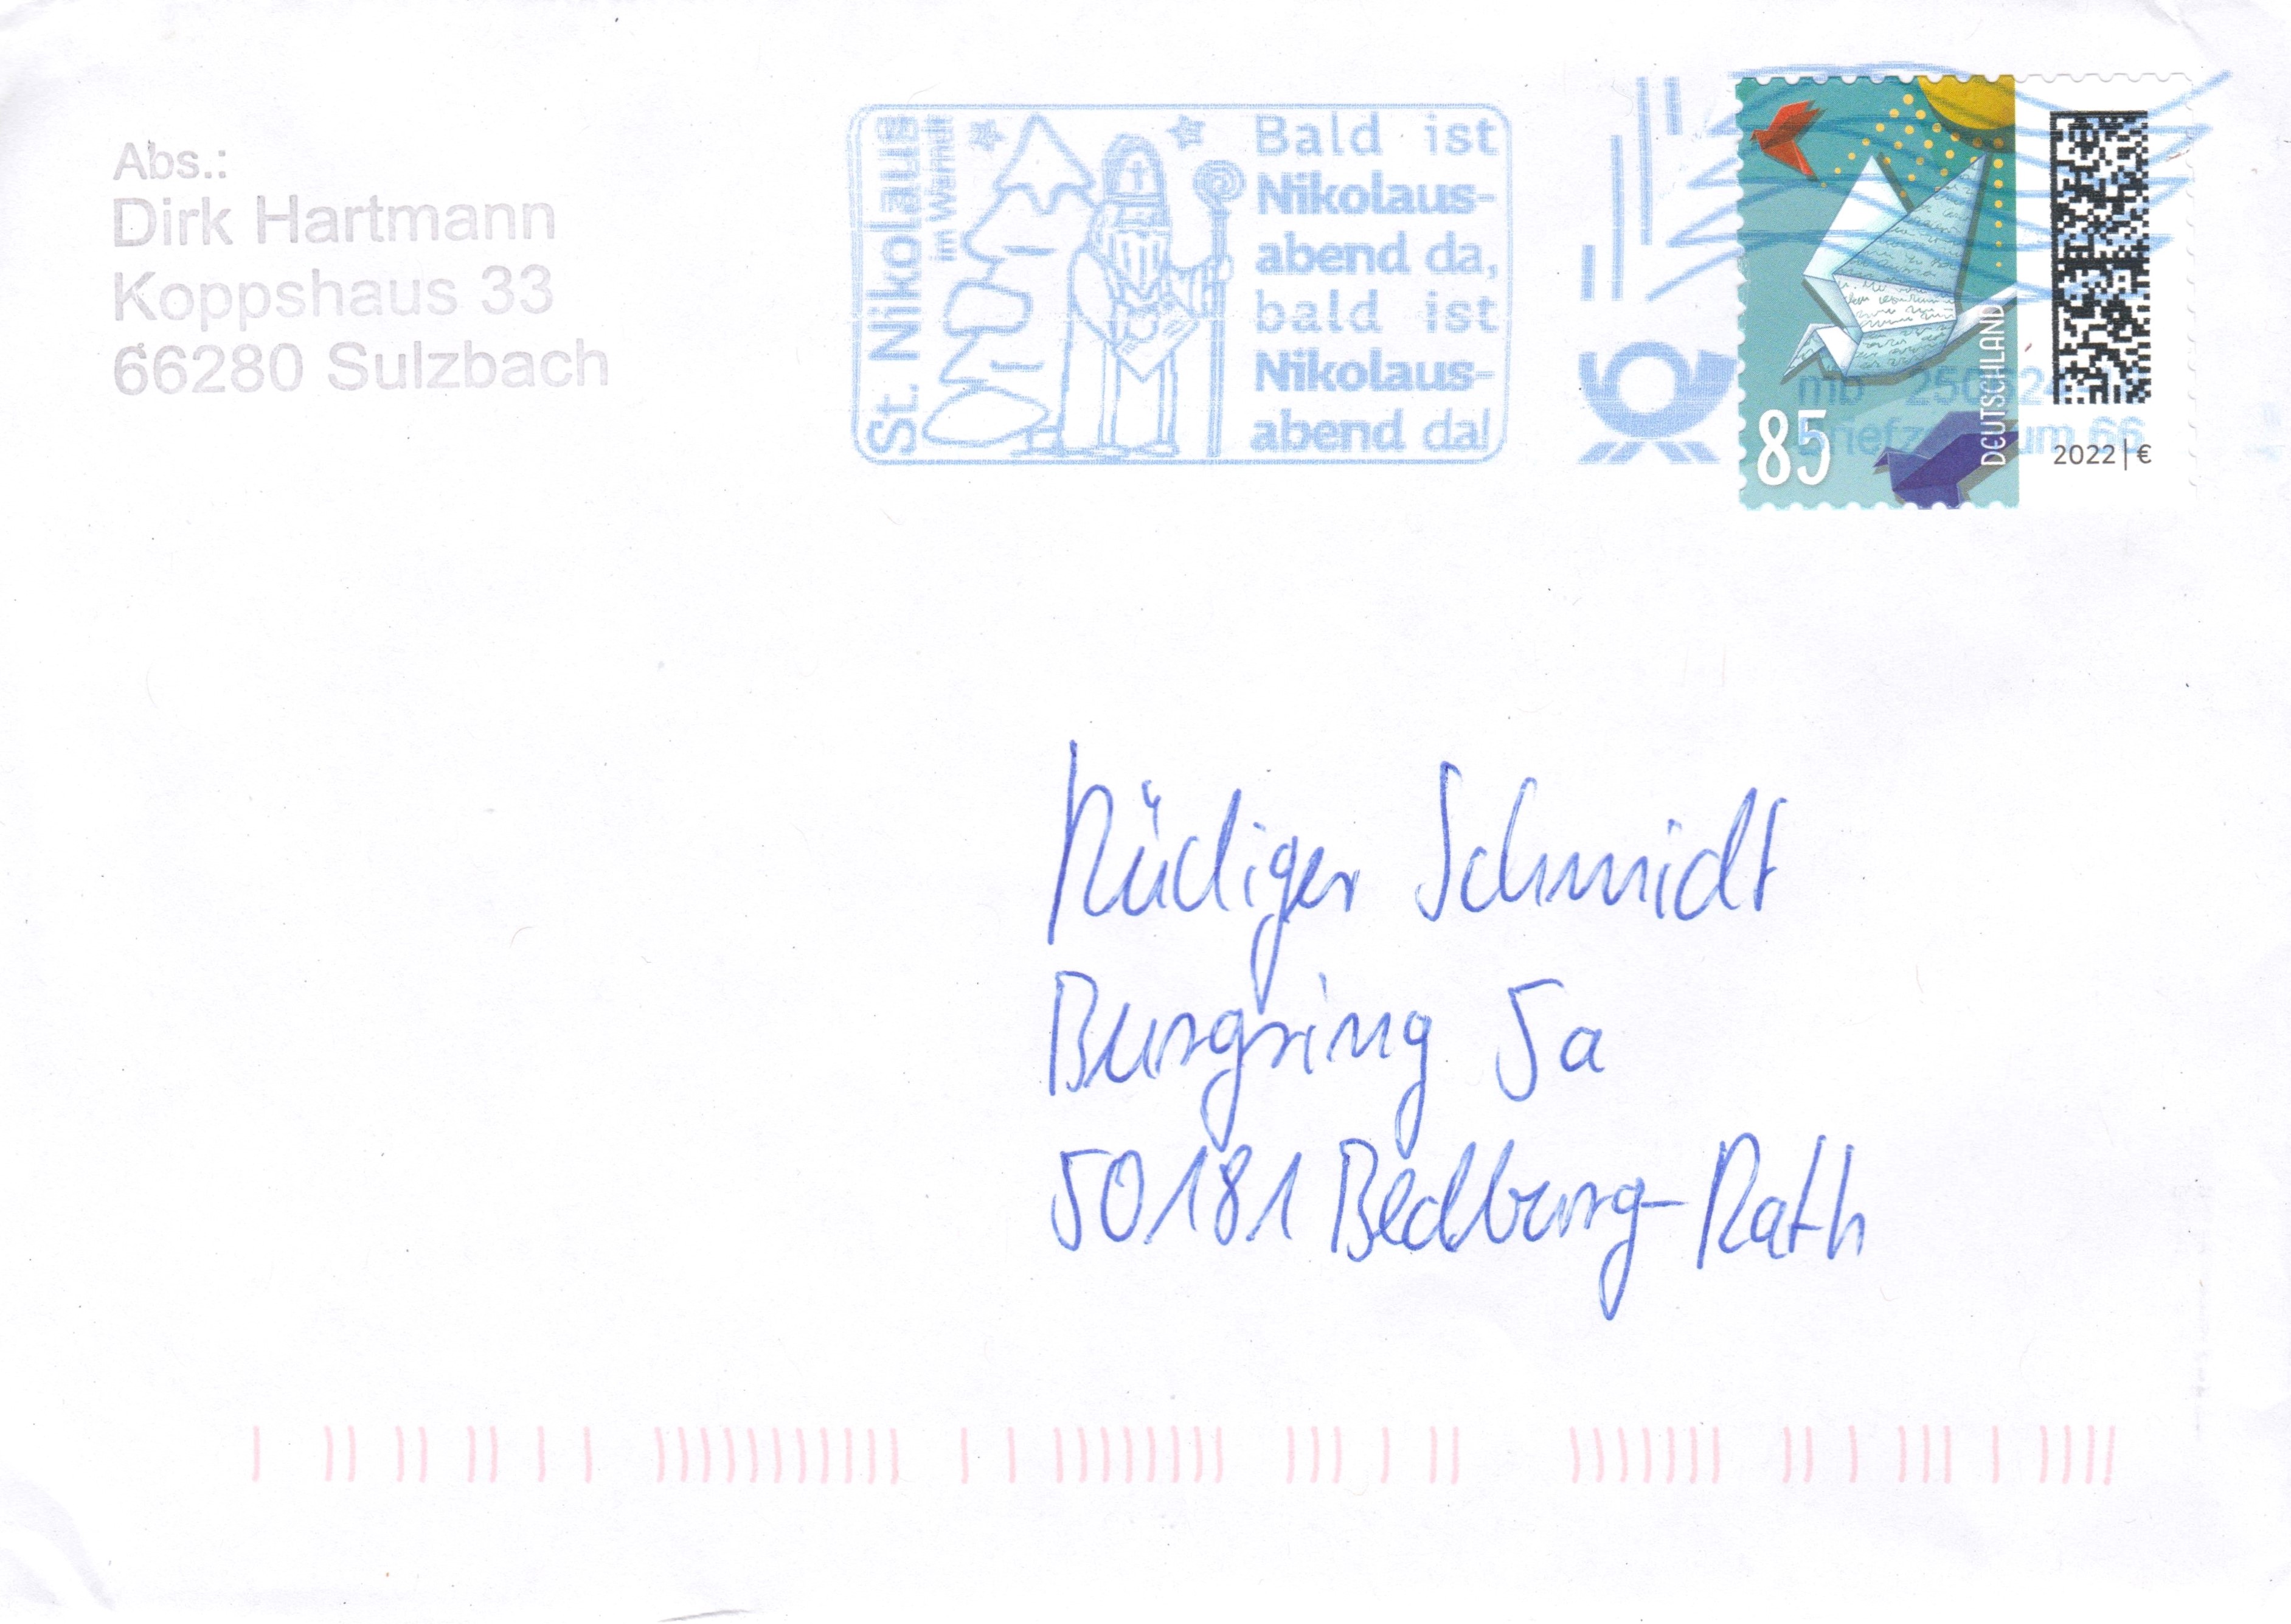 Abs.:
Dirk Hartmann
Koppshaus 33
66280 Sulzbach
St. Nikolaus
im Warndt
Bald ist
Nikolaus-
abend da,
bald ist
Nikolaus-
abend da!
DEUTSCHLAND
85
2022 | €
mb
66
Rüdiger Schmidt
Burgring 5a
50181 Bedburg-Rath